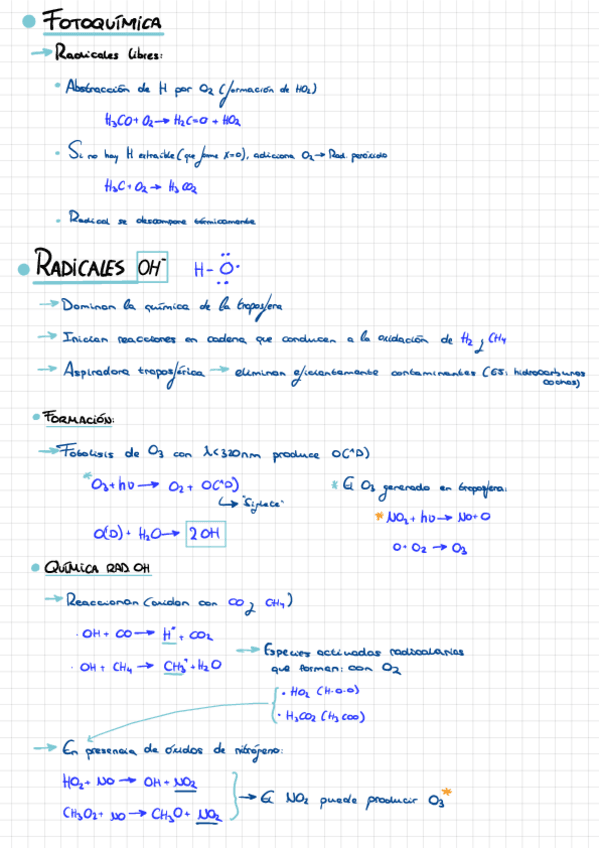 FOTOQUÍMICA
→ Radicales libres:
• Abstracción de H por O₂ (formación de HO₂)
H₃CO + O₂ → H₂C=O + HO₂
• Si no hay H extraible (que forme X=O), adiciona O₂ → Rad. peróxido
H₃C + O₂ → H₃CO₂
• Radical se descompone térmicamente
RADICALES OH⁻ H-Ö·
→ Dominan la química de la troposfera
→ Inician reacciones en cadena que conducen a la oxidación de H₂ y CH₄
→ Aspiradora troposférica → eliminan eficientemente contaminantes (ej: hidrocarburos
coches)
• FORMACIÓN:
→ Fotólisis de O₃ con λ<320nm produce O(¹D)
*O₃ + hν → O₂ + O(¹D)
↳ "Siglete"
O(D) + H₂O → 2 OH
* El O₃ generado en troposfera:
*NO₂ + hν → NO+O
O + O₂ → O₃
• QUÍMICA RAD OH
→ Reaccionan (oxidan con CO y CH₄)
· OH + CO → H· + CO₂
· OH + CH₄ → CH₃· + H₂O
→ Especies activadas radicalarias
que forman: con O₂
· HO₂ (H-O-O)
· H₃CO₂ (H₃COO)
→ En presencia de óxidos de nitrógeno:
HO₂ + NO → OH + NO₂
CH₃O₂ + NO → CH₃O + NO₂
→ El NO₂ puede producir O₃*